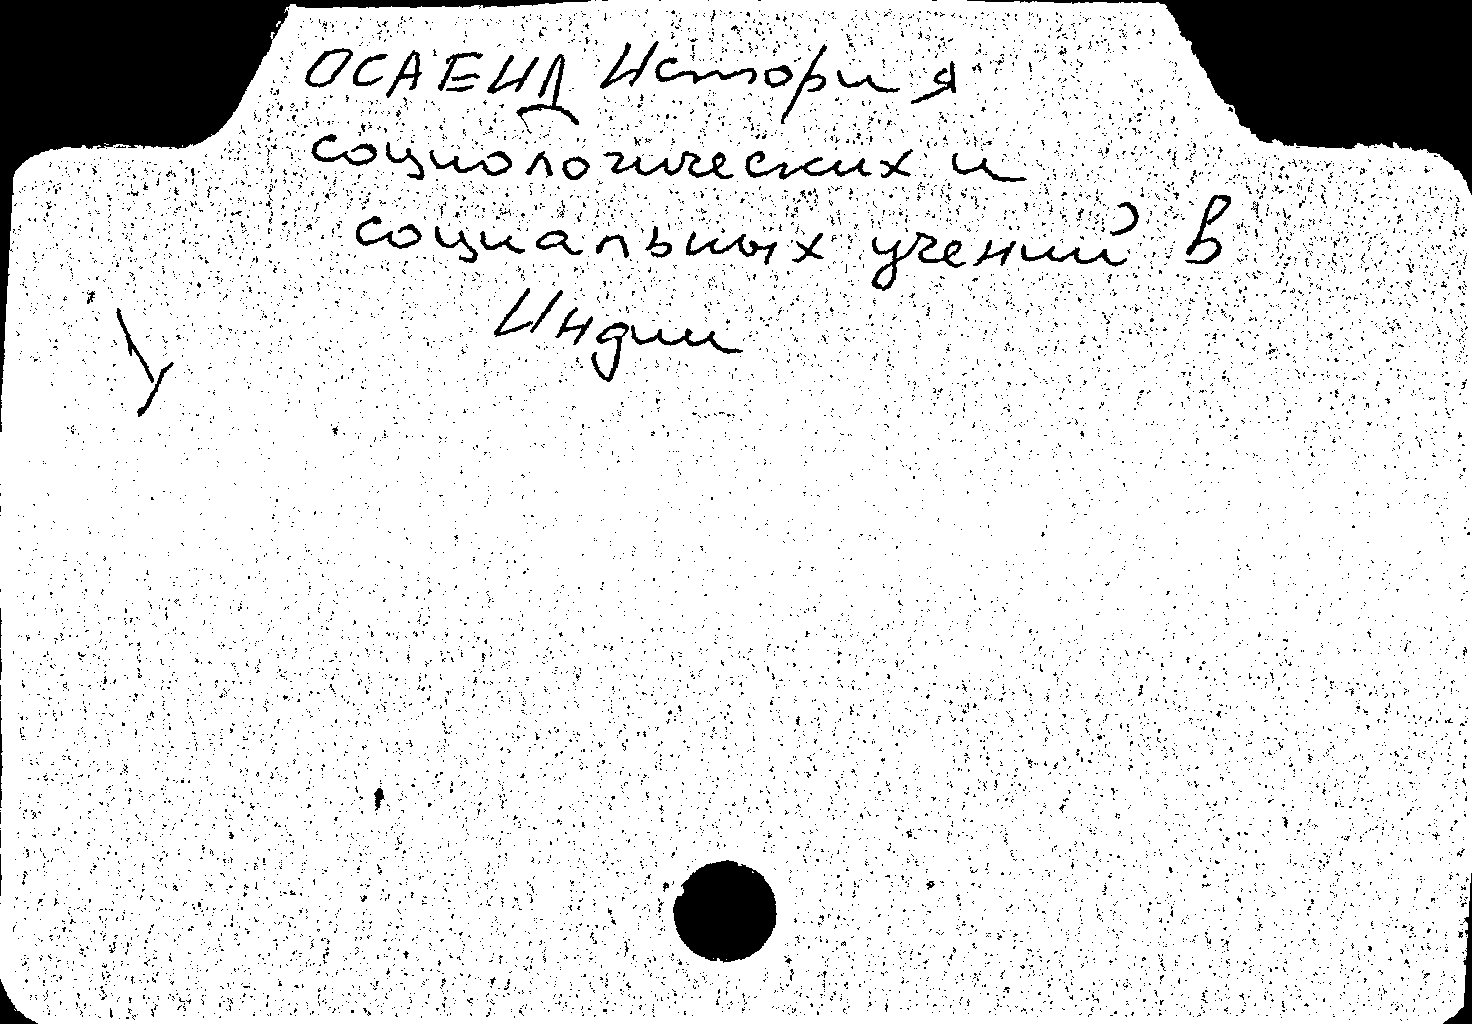 ОСАЕИД История
социологических и
социальных учений в
Индии